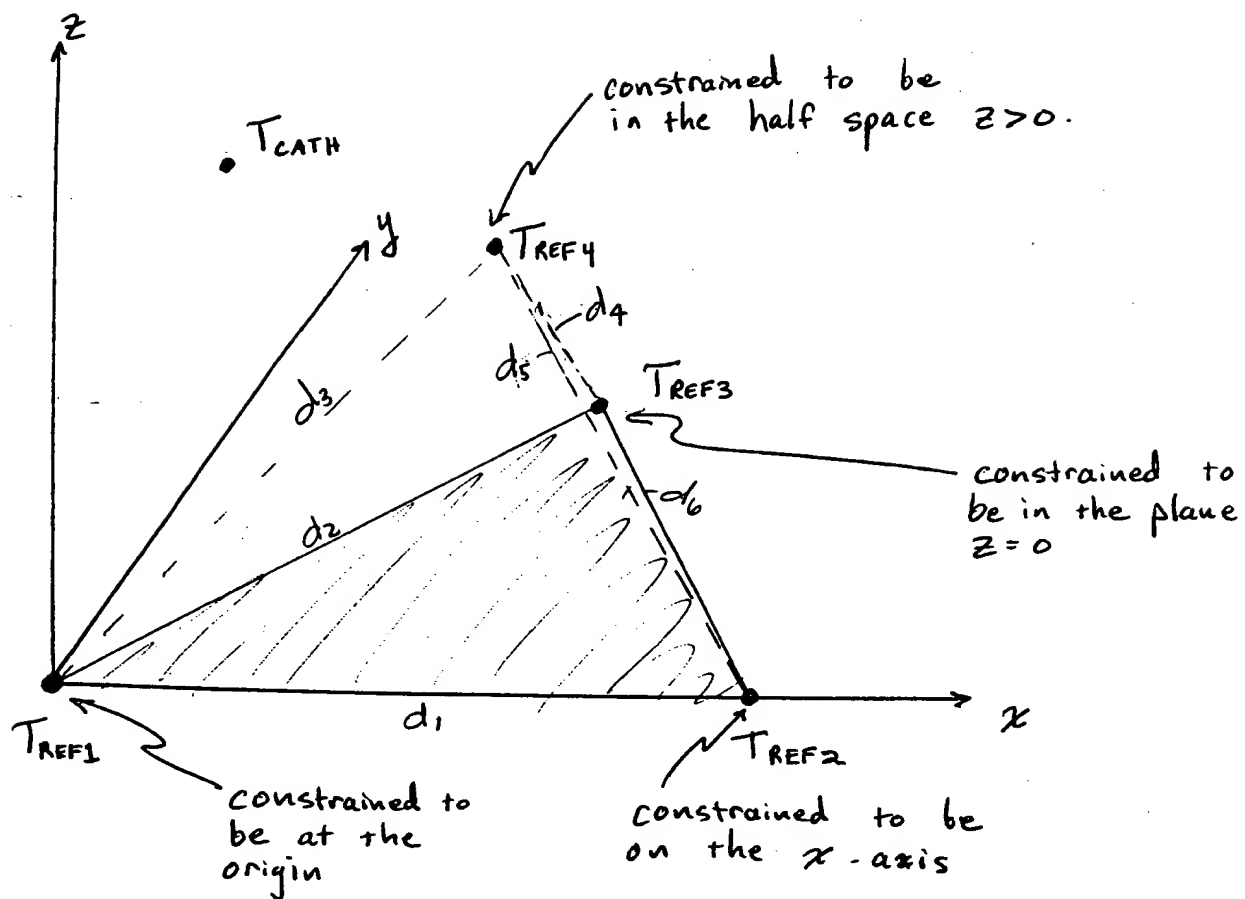 z
constrained to be
in the half space z>0.
TCATH
y
TREF4
d4
d5
TREF3
d3
constrained to
be in the plane
z=0
d6
d2
d1
x
TREF1
TREF2
constrained to
be at the
origin
constrained to be
on the x-axis